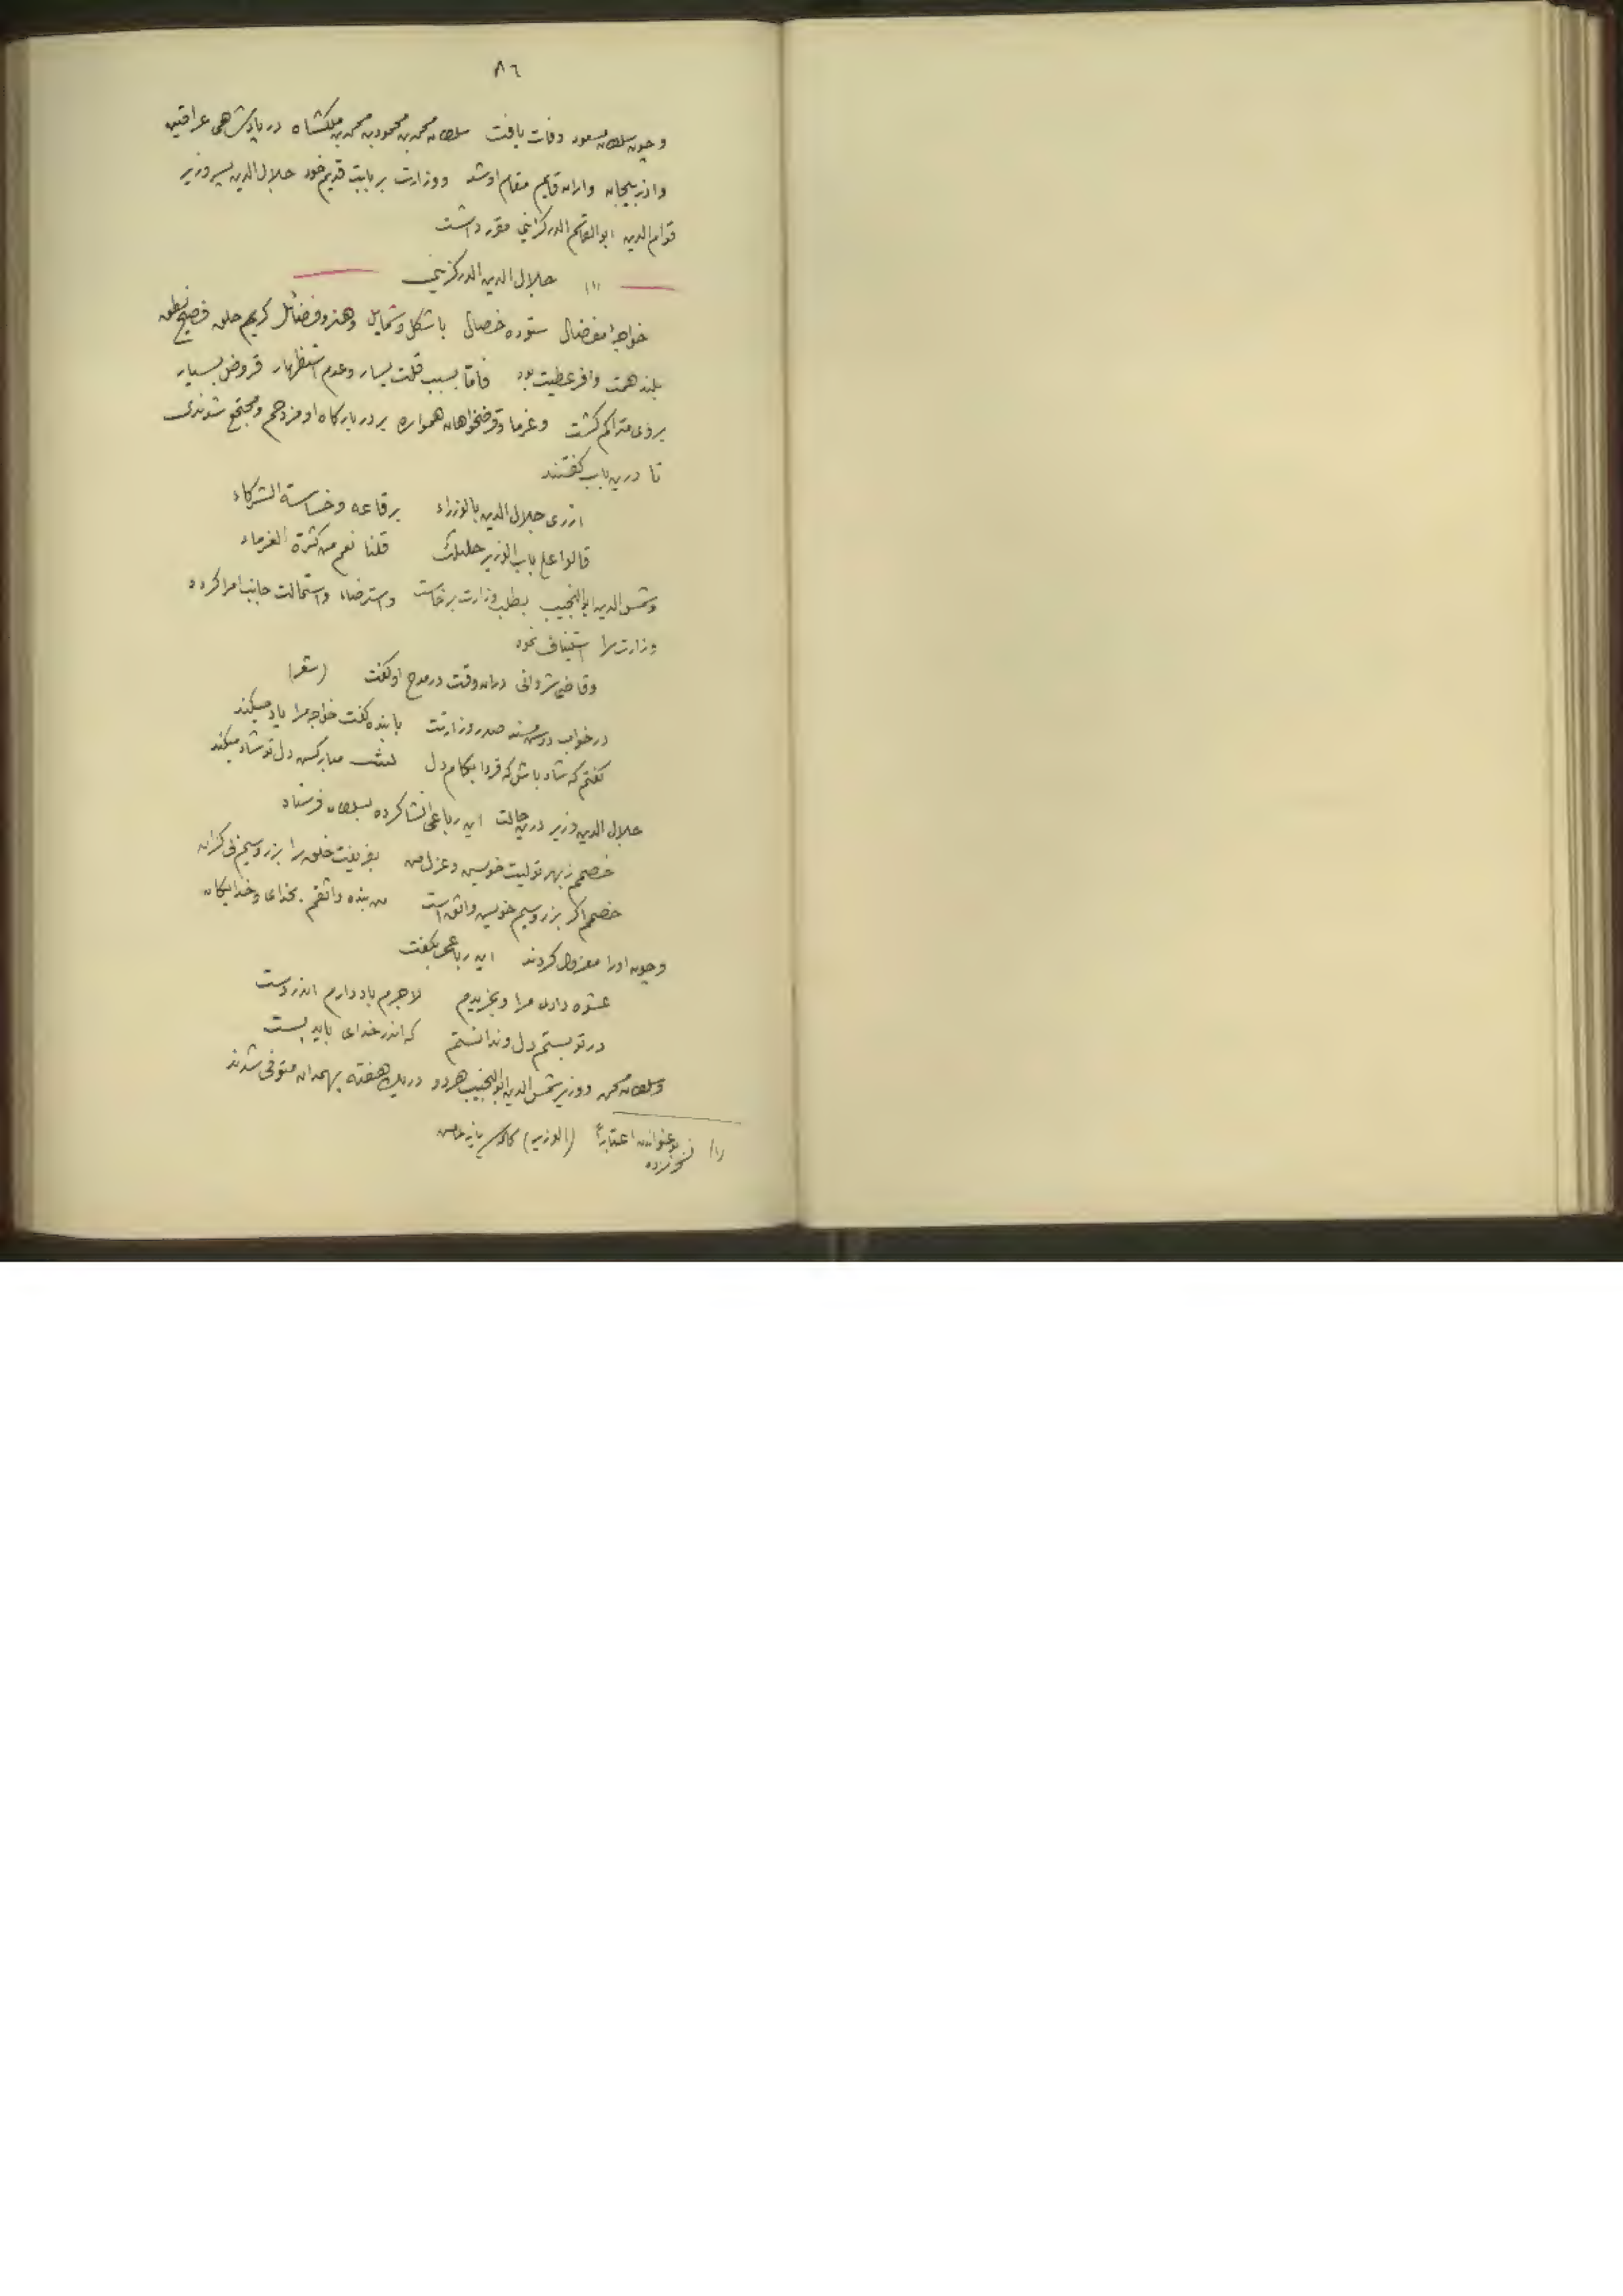 ٨٦
وچون سلطان مسعود وفات یافت سلطان محمد بن محمود بن محمد بن ملکشاه در پادشاهی عراقین
واذربیجان واران قایم مقام او شد ووزارت بر نایب قدیم خود جلال الدین پسر وزیر
قوام الدین ابوالقاسم الدرکزینی مقرر داشت
(١) جلال الدین الدرکزینی
خواجهٔ مفضال ستوده خصال با شکل وشمایل وهنر وفضائل کریم خلق فصیح نطق
بلند همت وافر عطیت بود فاما بسبب قلت یسار وعدم استظهار قروض بسیار
بروی متراکم گشت وغرما وقرضخواهان همواره بر در بارکاه او مزدحم ومجتمع شوندی
تا درین باب کفتند
ازری جلال الدین بالوزراء برقاعه وخساسة الشرکاء
قالوا علی باب الوزیر جلیلک قلنا نعم من کثرة الغرماء
وشمس الدین ابو النجیب بطلب وزارت برخاست واسترضاء واستمالت جانب امرا کرد و
وزارت را استیناف نمود
وقاضی شروانی دران وقت در مدح او کفت (شعر)
در خواب دوش مسند صدر وزارتت با بنده کفت خواجه مرا یاد میکند
کفتم که شاد باش که فردا بکام دل مبارکش دل تو شاد میکند
جلال الدین وزیر درین حالت این رباعی انشا کرده بسلطان فرستاد
خصمم ز بهر تولیت خویش وعزل من بفریفت خلق را بزر وسیم بی کران
خصمم اگر بزر وسیم خویش واثق است من بنده واثقم بخدای وخدایکان
وچون اورا معزول کردند این رباعی بگفت
عشوه دادی مرا وبخریدم لاجرم باد دارم اندر دست
در تو بستم دل وندانستم که اندر خدای باید بست
وسلطان محمد ووزیر شمس الدین ابو النجیب هر دو در یک هفته بهمدان متوفی شدند
(١) عنوان اعتبارًا (الوزیر)